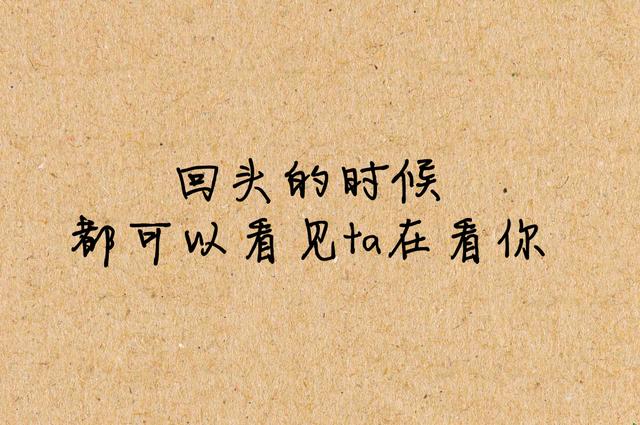 回头的时候
都可以看见ta在看你